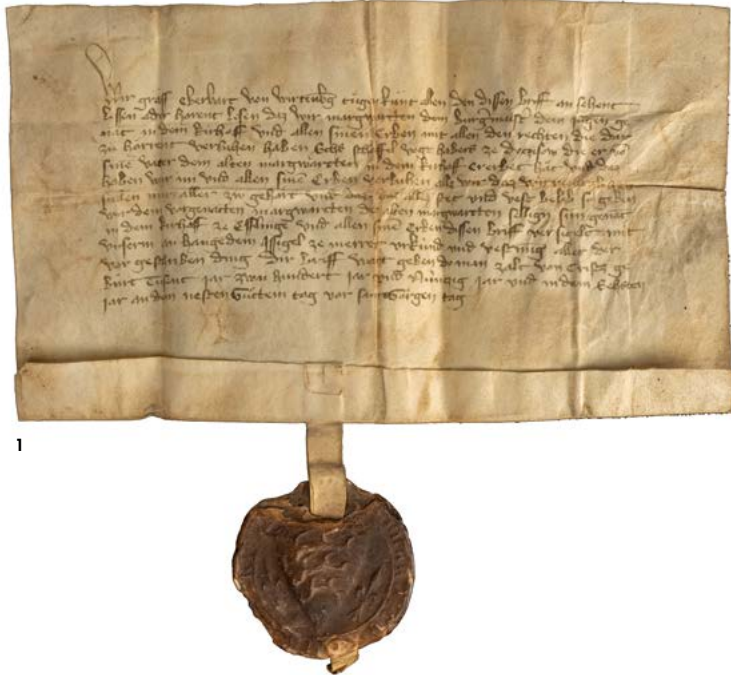 Wir graff eberhart von wirtenbg tugen kunt allen den dissen briff an sehent
lesen oder horent lesen daz wir margwartten dem burgmaist dem jungen ge
nat in dem kirchoff vnd allen sinen erben mit allen den rechten die dar
zu horrent verlihen haben Sehs scheffel vogt habers ze die er vo
sine vater dem alten margwartten in dem kirchoff ererbet hat vnd der
haben wir im vnd allen sine Erben verlihen als wir daz
sulen mit aller zu gehort vnd daz daz alles stet vnd vest belib so geben
wir dem vorgenatten margwartten des alten margwartten selligen sun genat
in dem kirchoff ze Esslingen vnd allen sine erben dissen briff versigelt mit
vnserm an hangedem Jssigel ze merrer vrkund vnd vestnug aller der
vor geschriben ding Dir briff wart geben do man zalt von Cristz ge
burt Tusent jar zwai hundert jar vnd Nuntzig jar vnd in dem Sehsten
jar an dan nesten Guttem tag vor sant Gorgen tag
1